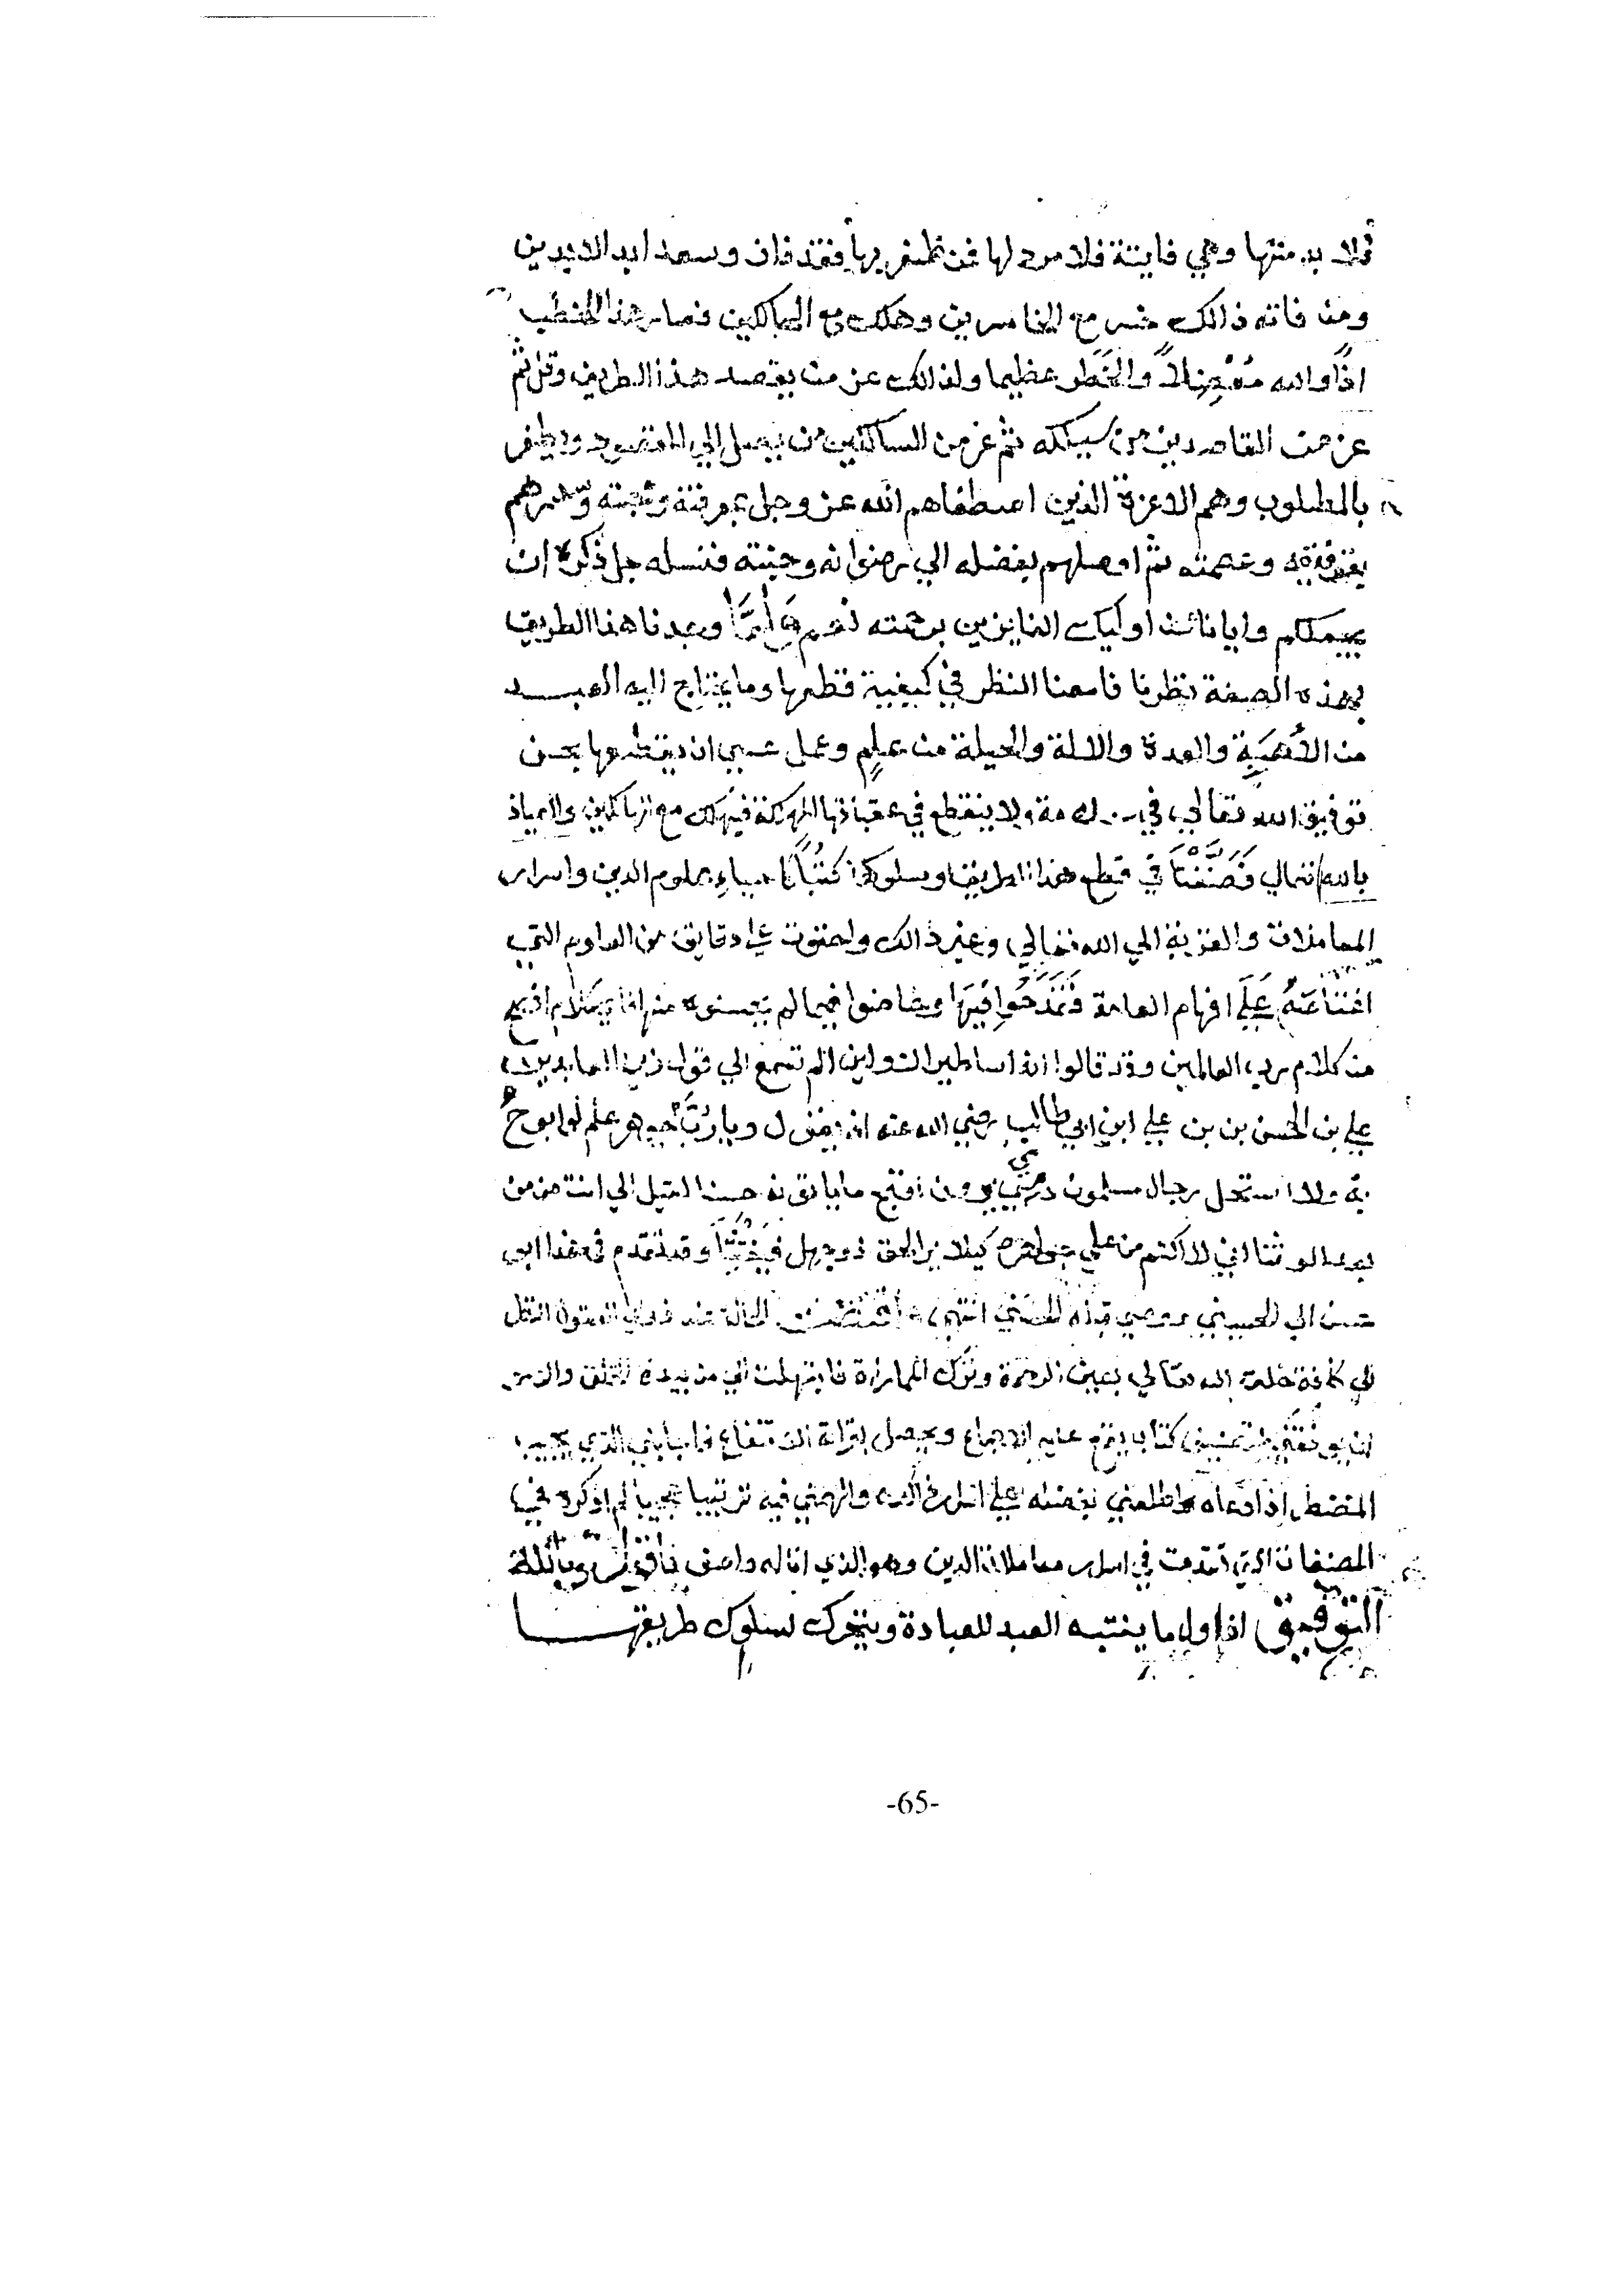 فلا بد منها وهي فايتة فلا مرد لها فمن ظفر بها فقد فاز وسعد ابد الابدين
ومن فاته ذالك خسر مع الخاسرين وهلك مع الهالكين فصار هذا الخطب
اذًا والله معضلاً والخَطَر عظيما ولذالك عز من يقصد هذا الطريق وقل ثم
عز من القاصدين من سلكه ثم عز من السالكين من يصل الي المقصود ويظفر
بالمطلوب وهم الاعزة الذين اصطفاهم الله عز وجل بمعرفته ومحبته وسددهم
بتوفيقه وعصمته ثم اوصلهم بفضله الي رضوانه وجنته فنسله جل ذكره ان
يجعلكم وايانا من اوليك الفايزين برحمته نعم ولمَّا وجدنا هذا الطريق
بهذه الصفة نظرنا فامعنا النظر في كيفية قطعها وما يحتاج اليه العبد
من الأهبة والعدة والالة والحيلة من علمٍ وعمل عسي ان يقطعها بحسن
توفيق الله تعالي في سلامة ولا ينقطع في عقباتها المهلكة فيهلك مع الهالكين والعياذ
بالله تعالي فَصَنَّفْنَا في قطع هذا الطريق وسلوكها كتُبًا كاحياء علوم الدين واسرار
المعاملات والقربة الي الله تعالي وغير ذالك واحتوت علي دقايق من العلوم التي
علي افهام العامة فقدحوا فيها وخاضوا فيما لم يحسنوه منها فاي كلام افصح
من كلام رب العالمين وقد قالوا انه اساطير الاولين الم تسمع الي قول زين العابدين
علي بن الحسن بن علي ابن ابي طالب رضي الله عنه انه يقول ويا رُبَّ جوهر علم لو ابوحُ
به ولا استحل رجال مسلمون دمي يرون اقبح ما ياتونه حسنا لقيل الي انت ممن
يعبد الوثنا اني لاكتم من علمي جواهره كيلا يرا الحق ذو جهل وقد تقدم في هذا ابو
حسن الي الحسين ووصي قبله الحسني انتهي الحالة عند
الي كافة خلق الله تعالي بعين الرحمة وترك المماراة فابتهلت الي من بيده الخلق والامر
ان يوفقني لتصنيف كتاب يقع عليه الاجماع ويحصل بقراة الانتفاع فاجابني الذي يجيب
المضطر اذا دعاه واطلعني بفضله علي اسرار ذالك والهمني فيه ترتيبا عجيبا لم اذكره في
المصنفات التي تقدمت في اسرار معاملات الدين وهو الذي انا له واصف فاقول وبالله
التوفيق اذا اول ما ينتبه العبد للعبادة ويتحرك لسلوك طريقها
-65-